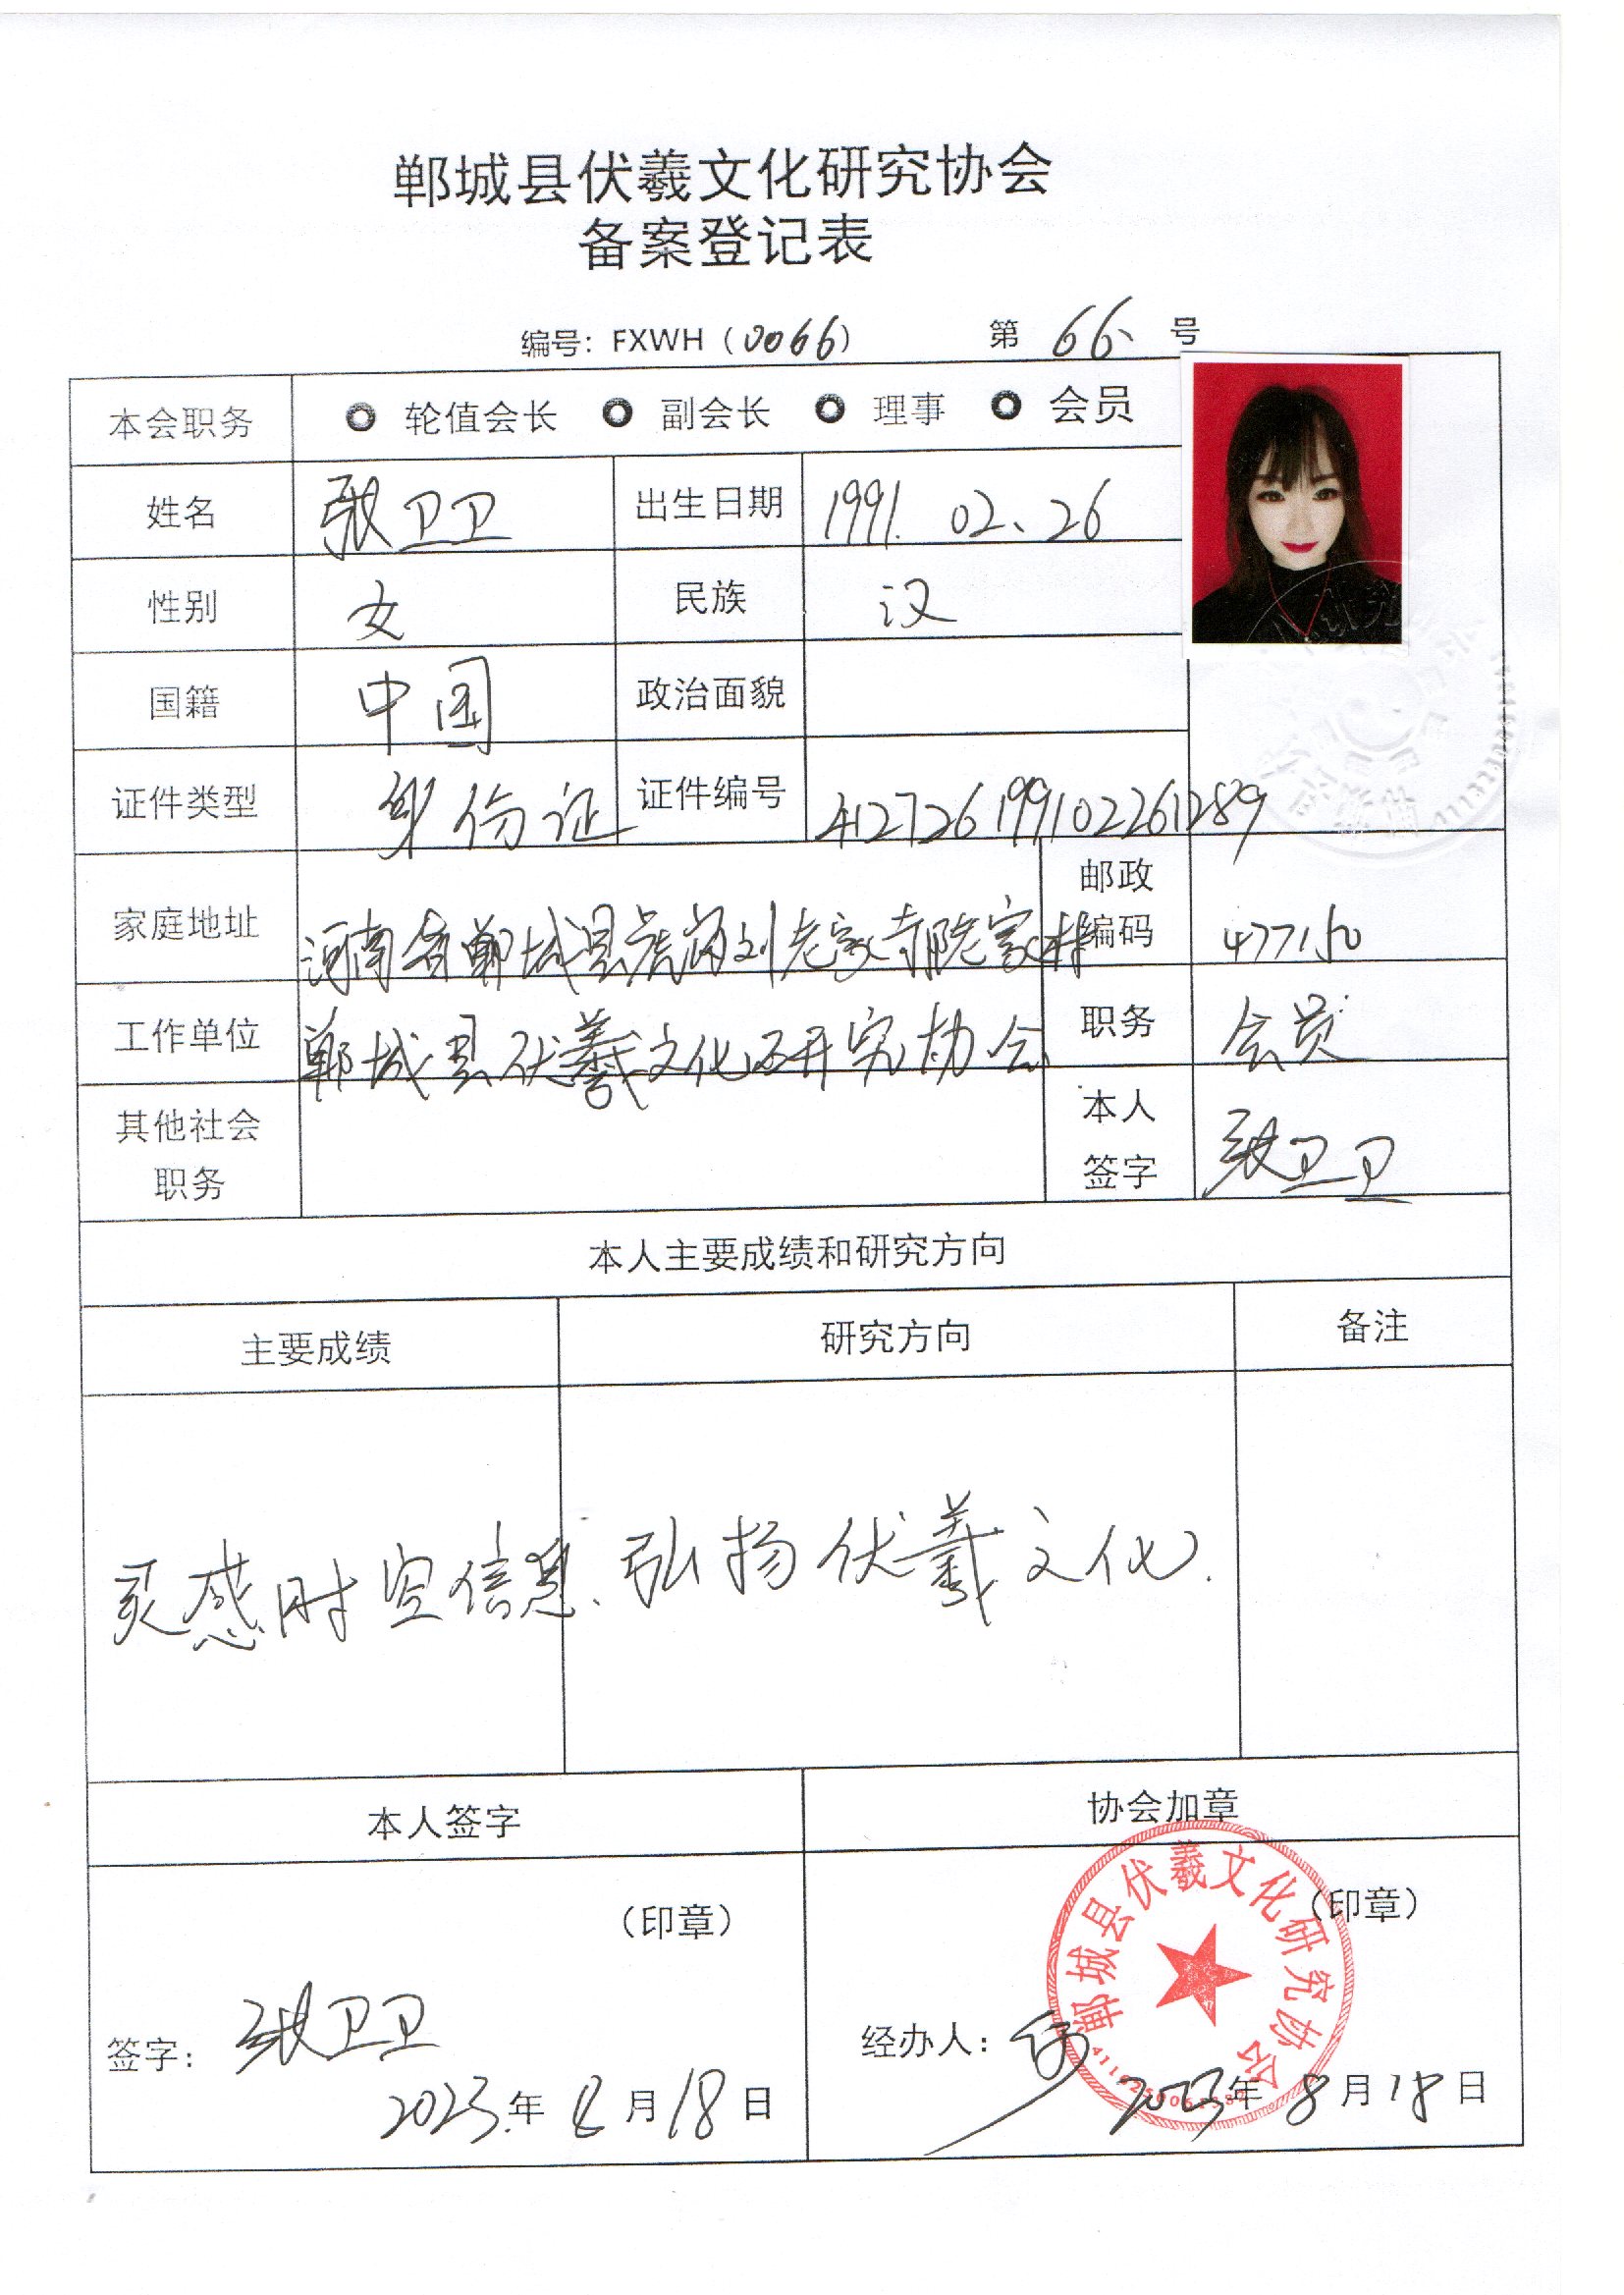 郸城县伏羲文化研究协会
备案登记表
编号：FXWH（0066） 第 66 号
本会职务 轮值会长 副会长 理事 会员
姓名 张卫卫 出生日期 1991.02.26
性别 女 民族 汉
国籍 中国 政治面貌
证件类型 身份证 证件编号 412726199102261289
家庭地址 河南省郸城县虎岗刘老家寺郎老家村 邮政编码 477150
工作单位 郸城县伏羲文化研究协会 职务 会员
其他社会职务 本人签字 张卫卫
本人主要成绩和研究方向
主要成绩 研究方向 备注
灵感时空信息、弘扬伏羲文化.
本人签字 协会加章
（印章） （印章）
郸城县伏羲文化研究协会
签字： 张卫卫 经办人：
2023.年 8月18日 2023年 8月18日